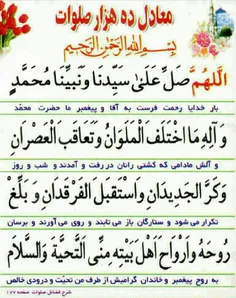 معادل ده هزار صلوات
بِسْمِ اللهِ الرَّحْمٰنِ الرَّحِيمِ
اللّهُمَّ صَلِّ عَلَىٰ سَيِّدِنا وَنَبِيِّنا مُحَمَّدٍ
بار خدایا رحمت فرست به آقا و پیغمبر ما حضرت محمد
وَ آلِهِ مَا اخْتَلَفَ الْمَلَوَانُ وَتَعاقَبَ الْعَصْرانِ
و آلش مادامی که گشتی رانان در رفت و آمدند و شب و روز
وَكَرَّ الْجَدِيدَانِ وَاسْتَقْبَلَ الْفَرْقَدَانِ وَ بَلِّغْ
تکرار می شود و ستارگان باز می تابند و روی می آورند و برسان
رُوحَهُ وَاَرْواحَ اَهْلِ بَيْتِهِ مِنِّى التَّحِيَّةَ وَالسَّلامَ
به روح پیغمبر و خاندان گرامیش از طرف من تحیت و درودی خالص
شرح فضائل صلوات صفحه ۱۷۷